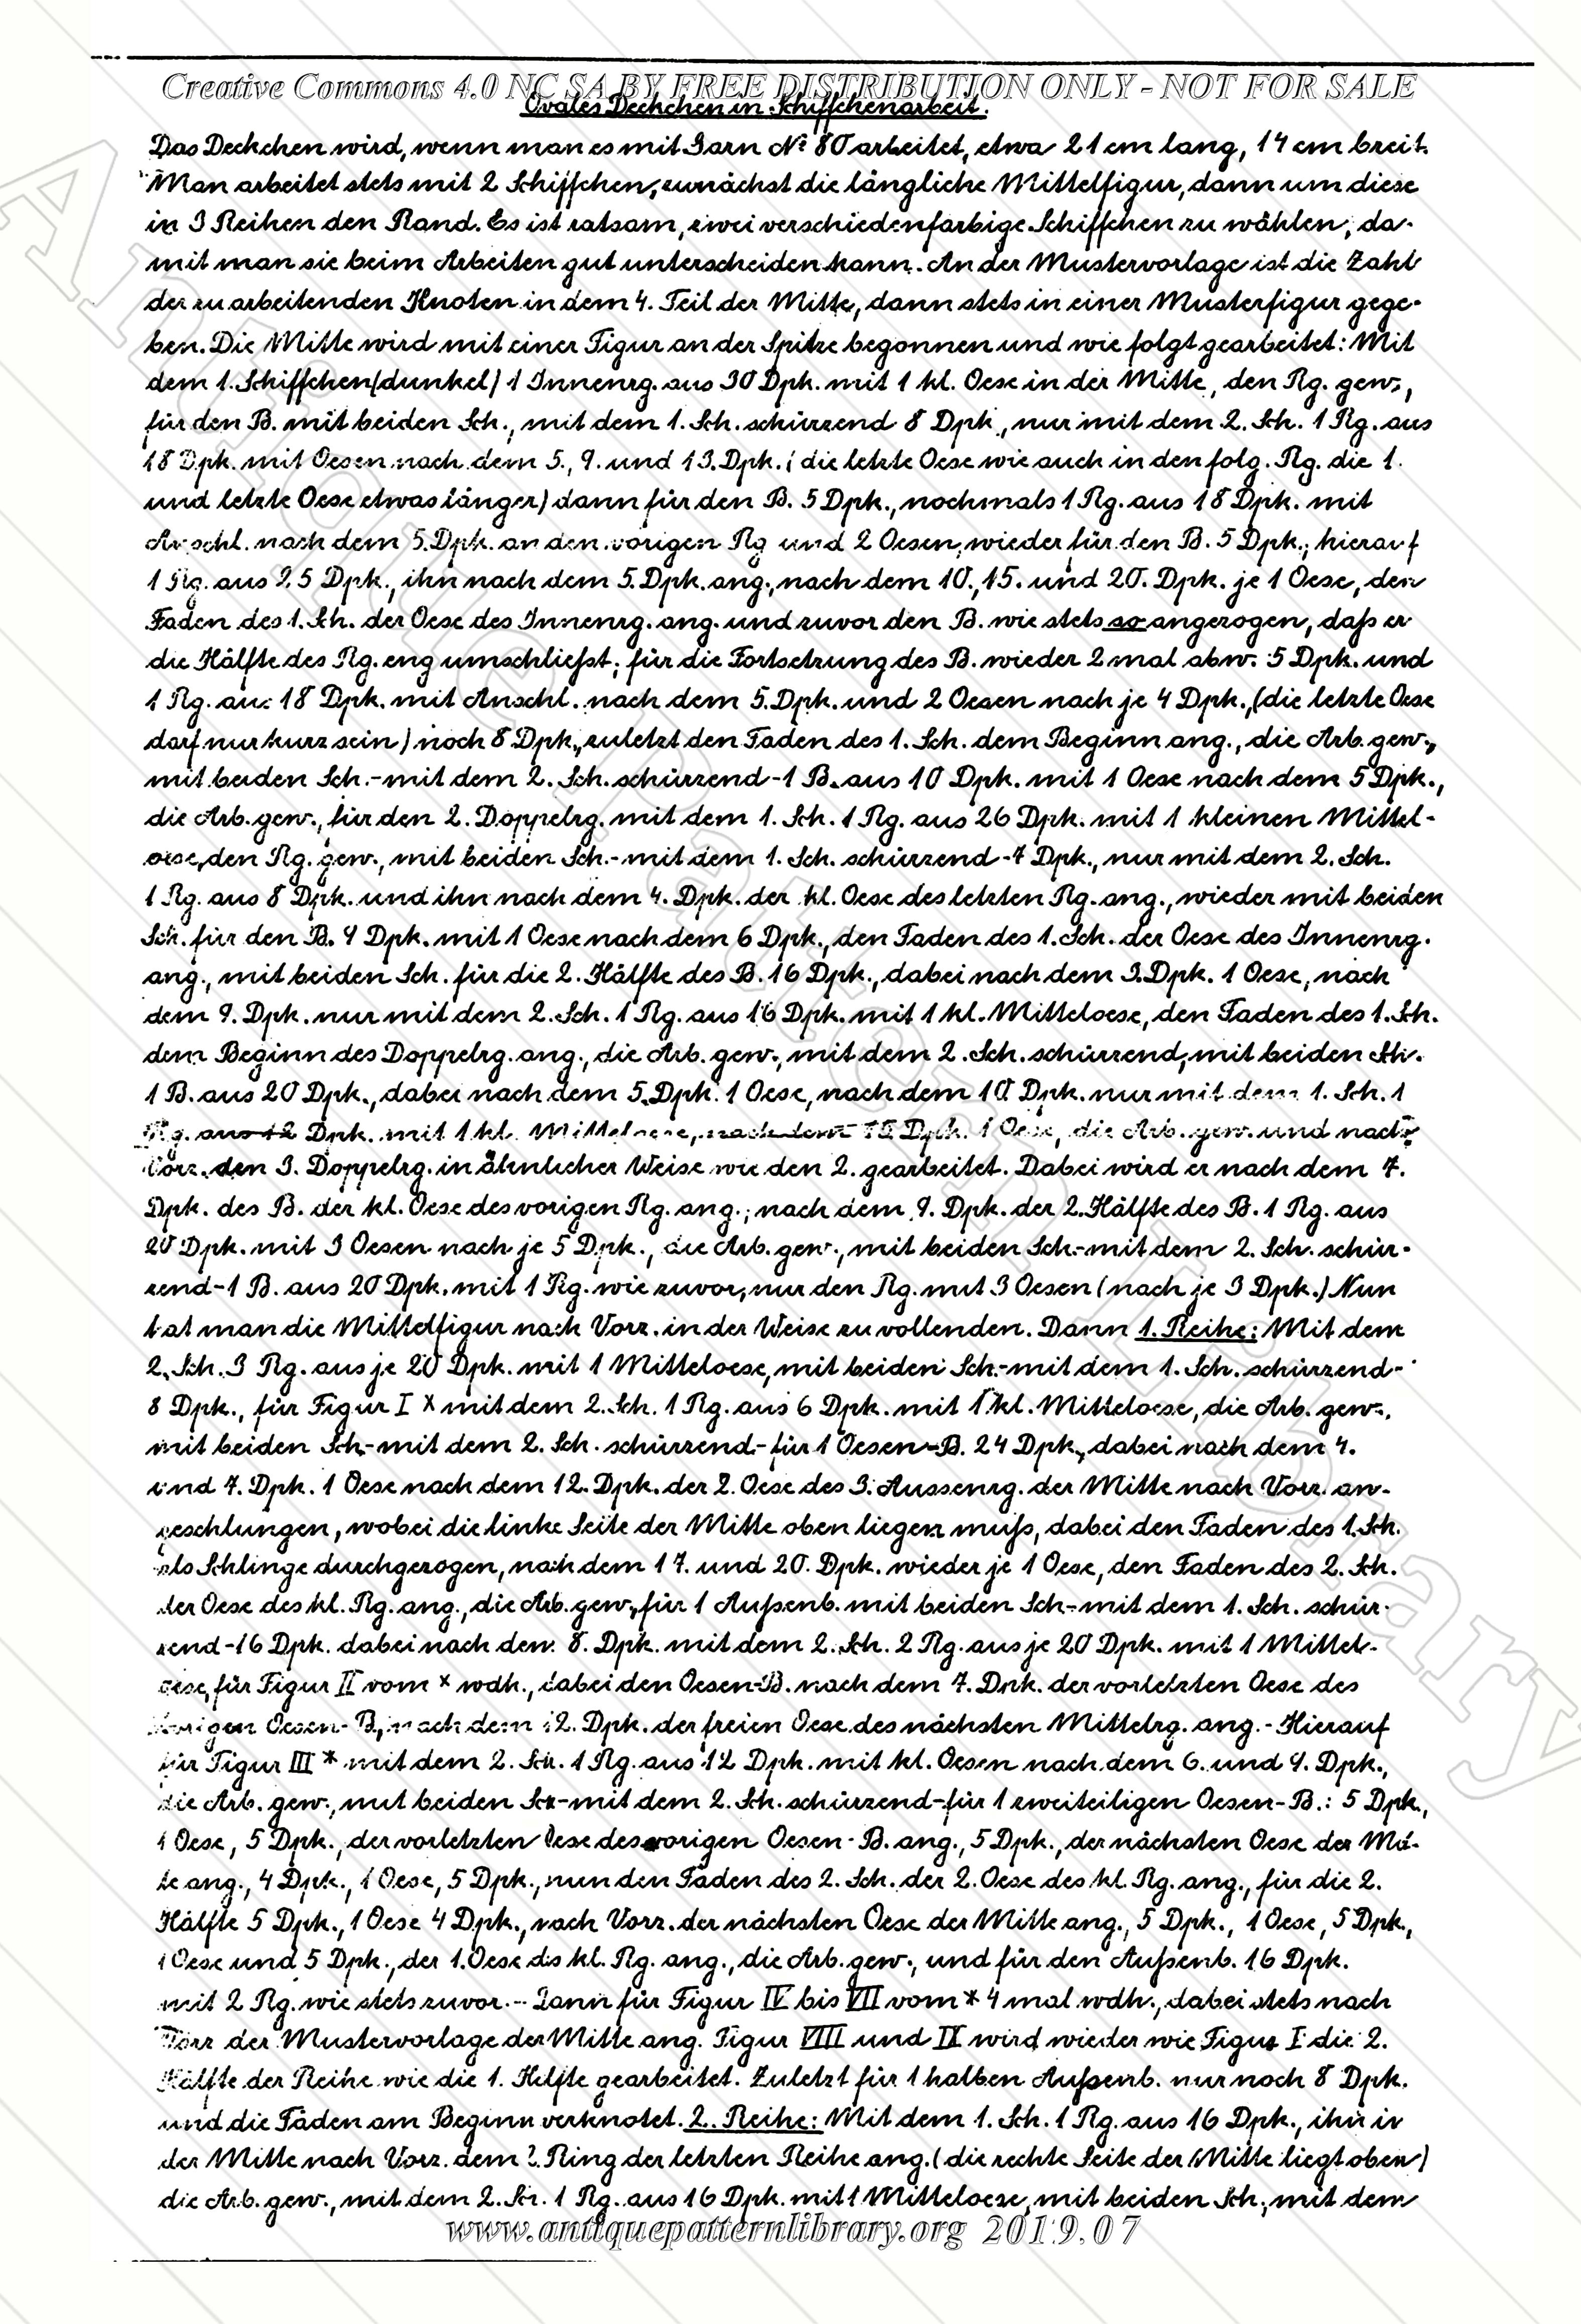 Creative Commons 4.0 NC SA BY FREE DISTRIBUTION ONLY - NOT FOR SALE
Ovales Deckchen in Schiffchenarbeit.
Das Deckchen wird, wenn man es mit Garn No 80 arbeitet, etwa 21 cm lang, 14 cm breit.
Man arbeitet stets mit 2 Schiffchen, zunächst die längliche Mittelfigur, dann um diese
in 3 Reihen den Rand. Es ist ratsam, zwei verschiedenfarbige Schiffchen zu wählen, da-
mit man sie beim Arbeiten gut unterscheiden kann. An der Mustervorlage ist die Zahl
der zu arbeitenden Knoten in dem 4. Teil der Mitte, dann stets in einer Musterfigur gege-
ben. Die Mitte wird mit einer Figur an der Spitze begonnen und wie folgt gearbeitet: Mit
dem 1. Schiffchen (dunkel) 1 Innenrg. aus 30 Dpk. mit 1 kl. Oese in der Mitte, den Rg. gew.,
für den B. mit beiden Sch., mit dem 1. Sch. schürzend 8 Dpk., nur mit dem 2. Sch. 1 Rg. aus
18 Dpk. mit Oesen nach dem 5., 9. und 13. Dpk. (die letzte Oese wie auch in den folg. Rg. die 1.
und letzte Oese etwas länger) dann für den B. 5 Dpk., nochmals 1 Rg. aus 18 Dpk. mit
Anschl. nach dem 5. Dpk. an den vorigen Rg und 2 Oesen, wieder für den B. 5 Dpk.; hierauf
1 Rg. aus 25 Dpk., ihn nach dem 5. Dpk. ang., nach dem 10., 15. und 20. Dpk. je 1 Oese, den
Faden des 1. Sch. der Oese des Innenrg. ang. und zuvor den B. wie stets so angezogen, daß er
die Hälfte des Rg. eng umschließt; für die Fortsetzung des B. wieder 2 mal abw. 5 Dpk. und
1 Rg. aus 18 Dpk. mit Anschl. nach dem 5. Dpk. und 2 Oesen nach je 4 Dpk., (die letzte Oese
darf nur kurz sein) noch 8 Dpk., zuletzt den Faden des 1. Sch. dem Beginn ang., die Arb. gew.,
mit beiden Sch. - mit dem 2. Sch. schürzend - 1 B. aus 10 Dpk. mit 1 Oese nach dem 5 Dpk.,
die Arb. gew., für den 2. Doppelrg. mit dem 1. Sch. 1 Rg. aus 26 Dpk. mit 1 kleinen Mittel-
oese, den Rg. gew., mit beiden Sch. - mit dem 1. Sch. schürzend - 7 Dpk., nur mit dem 2. Sch.
1 Rg. aus 8 Dpk. und ihn nach dem 4. Dpk. der kl. Oese des letzten Rg. ang., wieder mit beiden
Sch. für den B. 9 Dpk. mit 1 Oese nach dem 6 Dpk., den Faden des 1. Sch. der Oese des Innenrg.
ang., mit beiden Sch. für die 2. Hälfte des B. 16 Dpk., dabei nach dem 3. Dpk. 1 Oese, nach
dem 9. Dpk. nur mit dem 2. Sch. 1 Rg. aus 16 Dpk. mit 1 kl. Mitteloese, den Faden des 1. Sch.
dem Beginn des Doppelrg. ang., die Arb. gew., mit dem 2. Sch. schürzend, mit beiden Sch.
1 B. aus 20 Dpk., dabei nach dem 5. Dpk. 1 Oese, nach dem 10. Dpk. nur mit dem 1. Sch. 1
Rg. aus 12 Dpk. mit 1 kl. Mitteloese, nach dem 15 Dpk. 1 Oese, die Arb. gew. und nach
Vorz. den 3. Doppelrg. in ähnlicher Weise wie den 2. gearbeitet. Dabei wird er nach dem 7.
Dpk. des B. der kl. Oese des vorigen Rg. ang.; nach dem 9. Dpk. der 2. Hälfte des B. 1 Rg. aus
20 Dpk. mit 3 Oesen nach je 5 Dpk., die Arb. gew., mit beiden Sch. - mit dem 2. Sch. schür-
zend - 1 B. aus 20 Dpk. mit 1 Rg. wie zuvor, nur den Rg. mit 3 Oesen (nach je 3 Dpk.) Nun
hat man die Mittelfigur nach Vorz. in der Weise zu vollenden. Dann 1. Reihe: Mit dem
2. Sch. 3 Rg. aus je 20 Dpk. mit 1 Mitteloese, mit beiden Sch. - mit dem 1. Sch. schürzend -
8 Dpk., für Figur I x mit dem 2. Sch. 1 Rg. aus 6 Dpk. mit 1 kl. Mitteloese, die Arb. gew.,
mit beiden Sch. - mit dem 2. Sch. schürzend - für 1 Oesen-B. 24 Dpk., dabei nach dem 4.
und 7. Dpk. 1 Oese nach dem 12. Dpk. der 2. Oese des 3. Aussenrg. der Mitte nach Vorz. an-
geschlungen, wobei die linke Seite der Mitte oben liegen muß, dabei den Faden des 1. Sch.
als Schlinge durchgezogen, nach dem 17. und 20. Dpk. wieder je 1 Oese, den Faden des 2. Sch.
der Oese des kl. Rg. ang., die Arb. gew., für 1 Außenb. mit beiden Sch. - mit dem 1. Sch. schür-
zend - 16 Dpk. dabei nach dem 8. Dpk. mit dem 2. Sch. 2 Rg. aus je 20 Dpk. mit 1 Mittel-
oese, für Figur II vom x wdh., dabei den Oesen-B. nach dem 7. Dpk. der vorletzten Oese des
vorigen Oesen-B, nach dem 12. Dpk. der freien Oese des nächsten Mittelrg. ang. - Hierauf
für Figur III * mit dem 2. Sch. 1 Rg. aus 12 Dpk. mit kl. Oesen nach dem 6. und 9. Dpk.,
die Arb. gew., mit beiden Sch - mit dem 2. Sch. schürzend - für 1 zweiteiligen Oesen-B.: 5 Dpk.,
1 Oese, 5 Dpk., der vorletzten Oese des vorigen Oesen-B. ang., 5 Dpk., der nächsten Oese der Mit-
te ang., 4 Dpk., 1 Oese, 5 Dpk., nun den Faden des 2. Sch. der 2. Oese des kl. Rg. ang., für die 2.
Hälfte 5 Dpk., 1 Oese 4 Dpk., nach Vorz. der nächsten Oese der Mitte ang., 5 Dpk., 1 Oese, 5 Dpk.,
1 Oese und 5 Dpk., der 1. Oese des kl. Rg. ang., die Arb. gew., und für den Außenb. 16 Dpk.
mit 2 Rg. wie stets zuvor. - Dann für Figur IV bis VII vom * 4 mal wdh., dabei stets nach
Vorz der Mustervorlage der Mitte ang. Figur VIII und IX wird wieder wie Figur I die 2.
Hälfte der Reihe wie die 1. Hälfte gearbeitet. Zuletzt für 1 halben Außenb. nur noch 8 Dpk.
und die Fäden am Beginn verknotet. 2. Reihe: Mit dem 1. Sch. 1 Rg. aus 16 Dpk., ihn in
der Mitte nach Vorz. dem 2. Ring der letzten Reihe ang. (die rechte Seite der Mitte liegt oben)
die Arb. gew., mit dem 2. Sch. 1 Rg. aus 16 Dpk. mit 1 Mitteloese, mit beiden Sch., mit dem
www.antiquepatternlibrary.org 2019.07